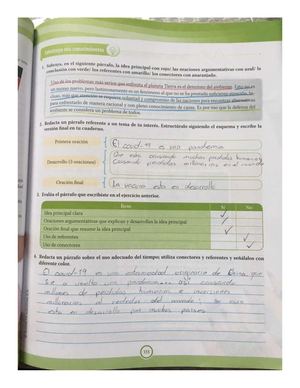 1. Subraya, en el siguiente párrafo, la idea principal con rojo/ las oraciones argumentativas con azul/ la
conclusión con verde/ los referentes con amarillo/ los conectores con anaranjado.
Uno de los problemas más serios que enfrenta el planeta Tierra es el deterioro del ambiente. Esto no es
un asunto nuevo, pero lastimosamente es un fenómeno al que no se ha prestado suficiente atención.
para enfrentarlo de manera racional y con pleno conocimiento de causa. Es por eso que la defensa del
ambiente se considera un problema de todos.
2. Redacta un párrafo referente a un tema de tu interés. Estructúralo siguiendo el esquema y escribe la
versión final en tu cuaderno.
Primera oración
El covid-19 es una pandemia
Desarrollo (3 oraciones)
Que está causando muchas perdidas humanas
Causando perdidas millonarias en el mundo
Oración final
La vacuna esta en desarrollo
3. Evalúa el párrafo que escribiste en el ejercicio anterior.
Ítem Sí No
Idea principal clara
Oraciones argumentativas que explican y desarrollan la idea principal
Oración final que resume la idea principal
Uso de referentes
Uso de conectores
4. Redacta un párrafo sobre el uso adecuado del tiempo; utiliza conectores y referentes y señálalos con
diferente color.
El covid-19 es una enfermedad originaria de China que
se a vuelto una pandemia causando
millones de perdidas humanas e inversiones
millonarias al rededor del mundo;
esta en desarrollo por muchos paises